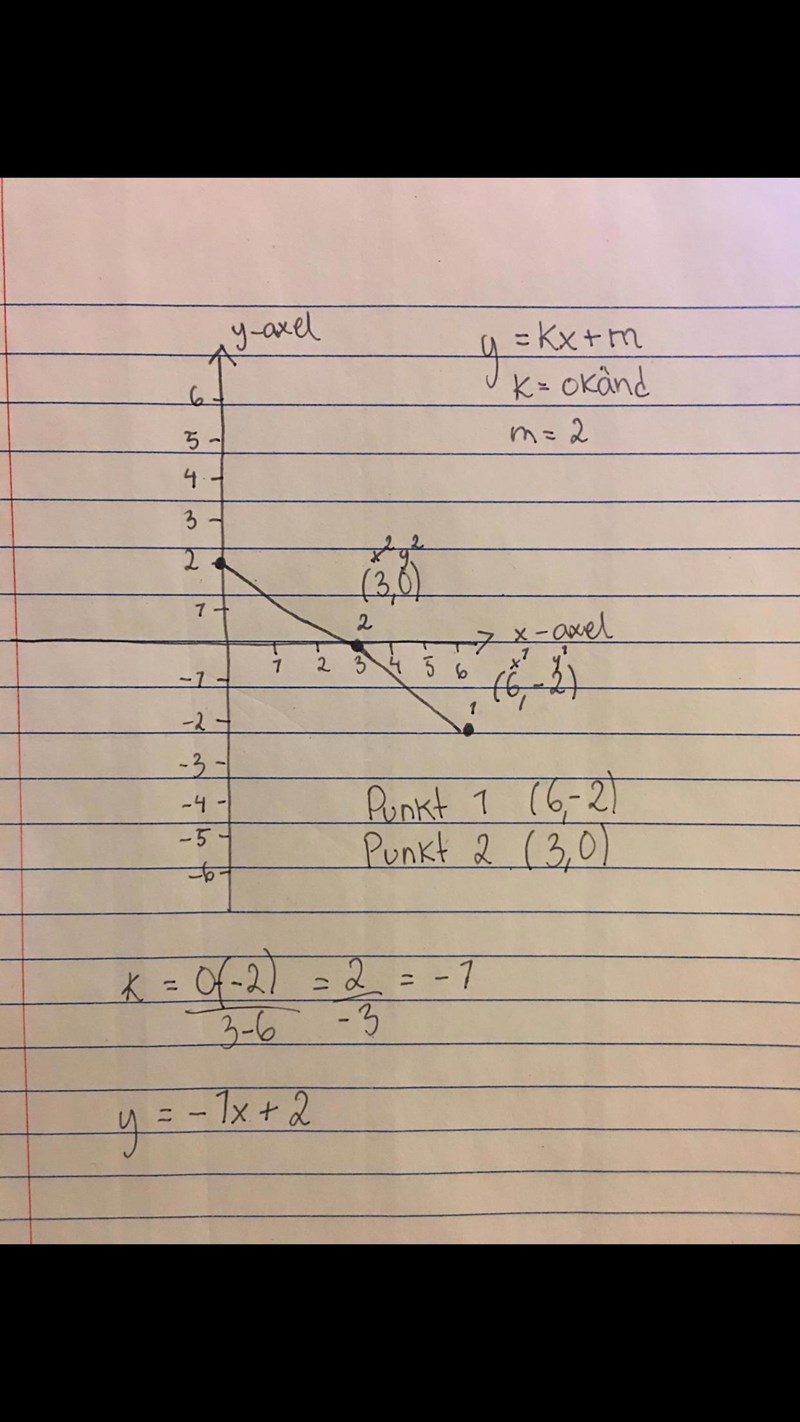 y-axel
y = kx + m
k = okänd
m = 2
6
5
4
3
2
1
x² y²
(3,0)
2
x-axel
1 2 3 4 5 6
x¹ y¹
(6,-2)
1
-1
-2
-3
-4
-5
-6
Punkt 1 (6,-2)
Punkt 2 (3,0)
k = 0-(-2) / 3-6 = 2 / -3 = -1
y = -1x + 2